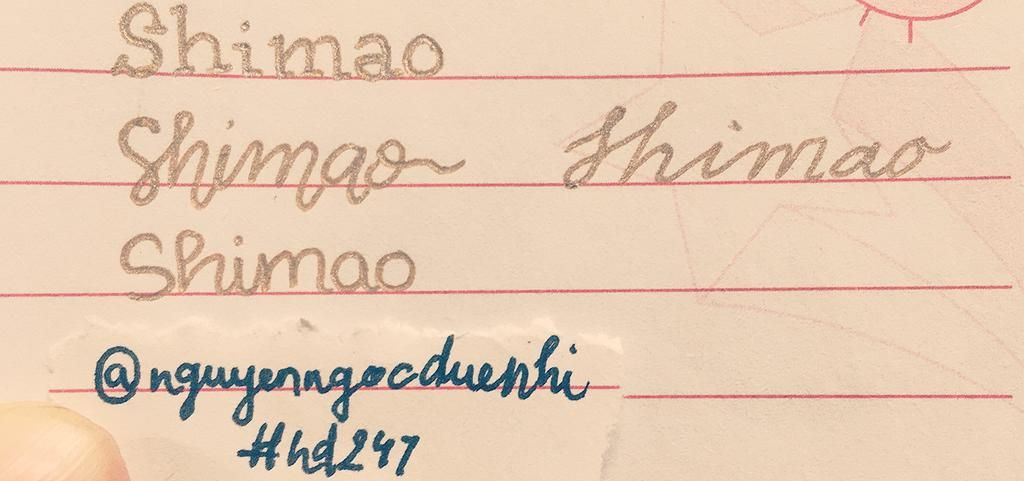 Shimao
Shimao Shimao
Shimao
@nguyenngocduenhi
#hd247